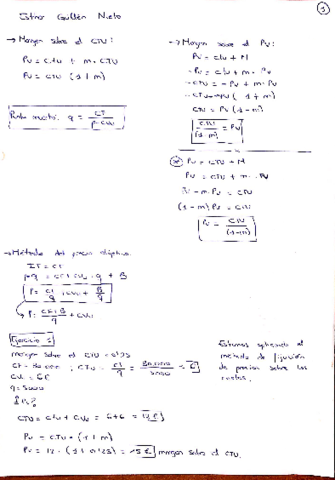 Esther Guillén Nieto
1
→ Margen sobre el CTU:
Pv = CTU + m · CTU
Pv = CTU (1 + m)
Punto muerto: q = CF / P - CVu
→ Margen sobre el Pv:
Pv = CTU + M
Pv = CTU + m · Pv
- CTU = - Pv + m · Pv
CTU = Pv (1 - m)
CTU / (1 - m) = Pv
Pv = CTU + M
Pv = CTU + m · Pv
Pv - m · Pv = CTU
(1 - m) Pv = CTU
Pv = CTU / (1 - m)
→ Método del precio objetivo
IT = CT
P = CF / q + CVu + B / q
P = CF + B / q + CVu
Ejercicio 1
margen sobre el CTU = 0'25
q = 5000
CTU = CFu + CVu = 6 + 6 = 12 €
Pv = CTU · (1 + m)
Pv = 12 · (1 + 0'25) = 15 € margen sobre el CTU.
Estamos aplicando el
método de fijación
de precios sobre los
costes.